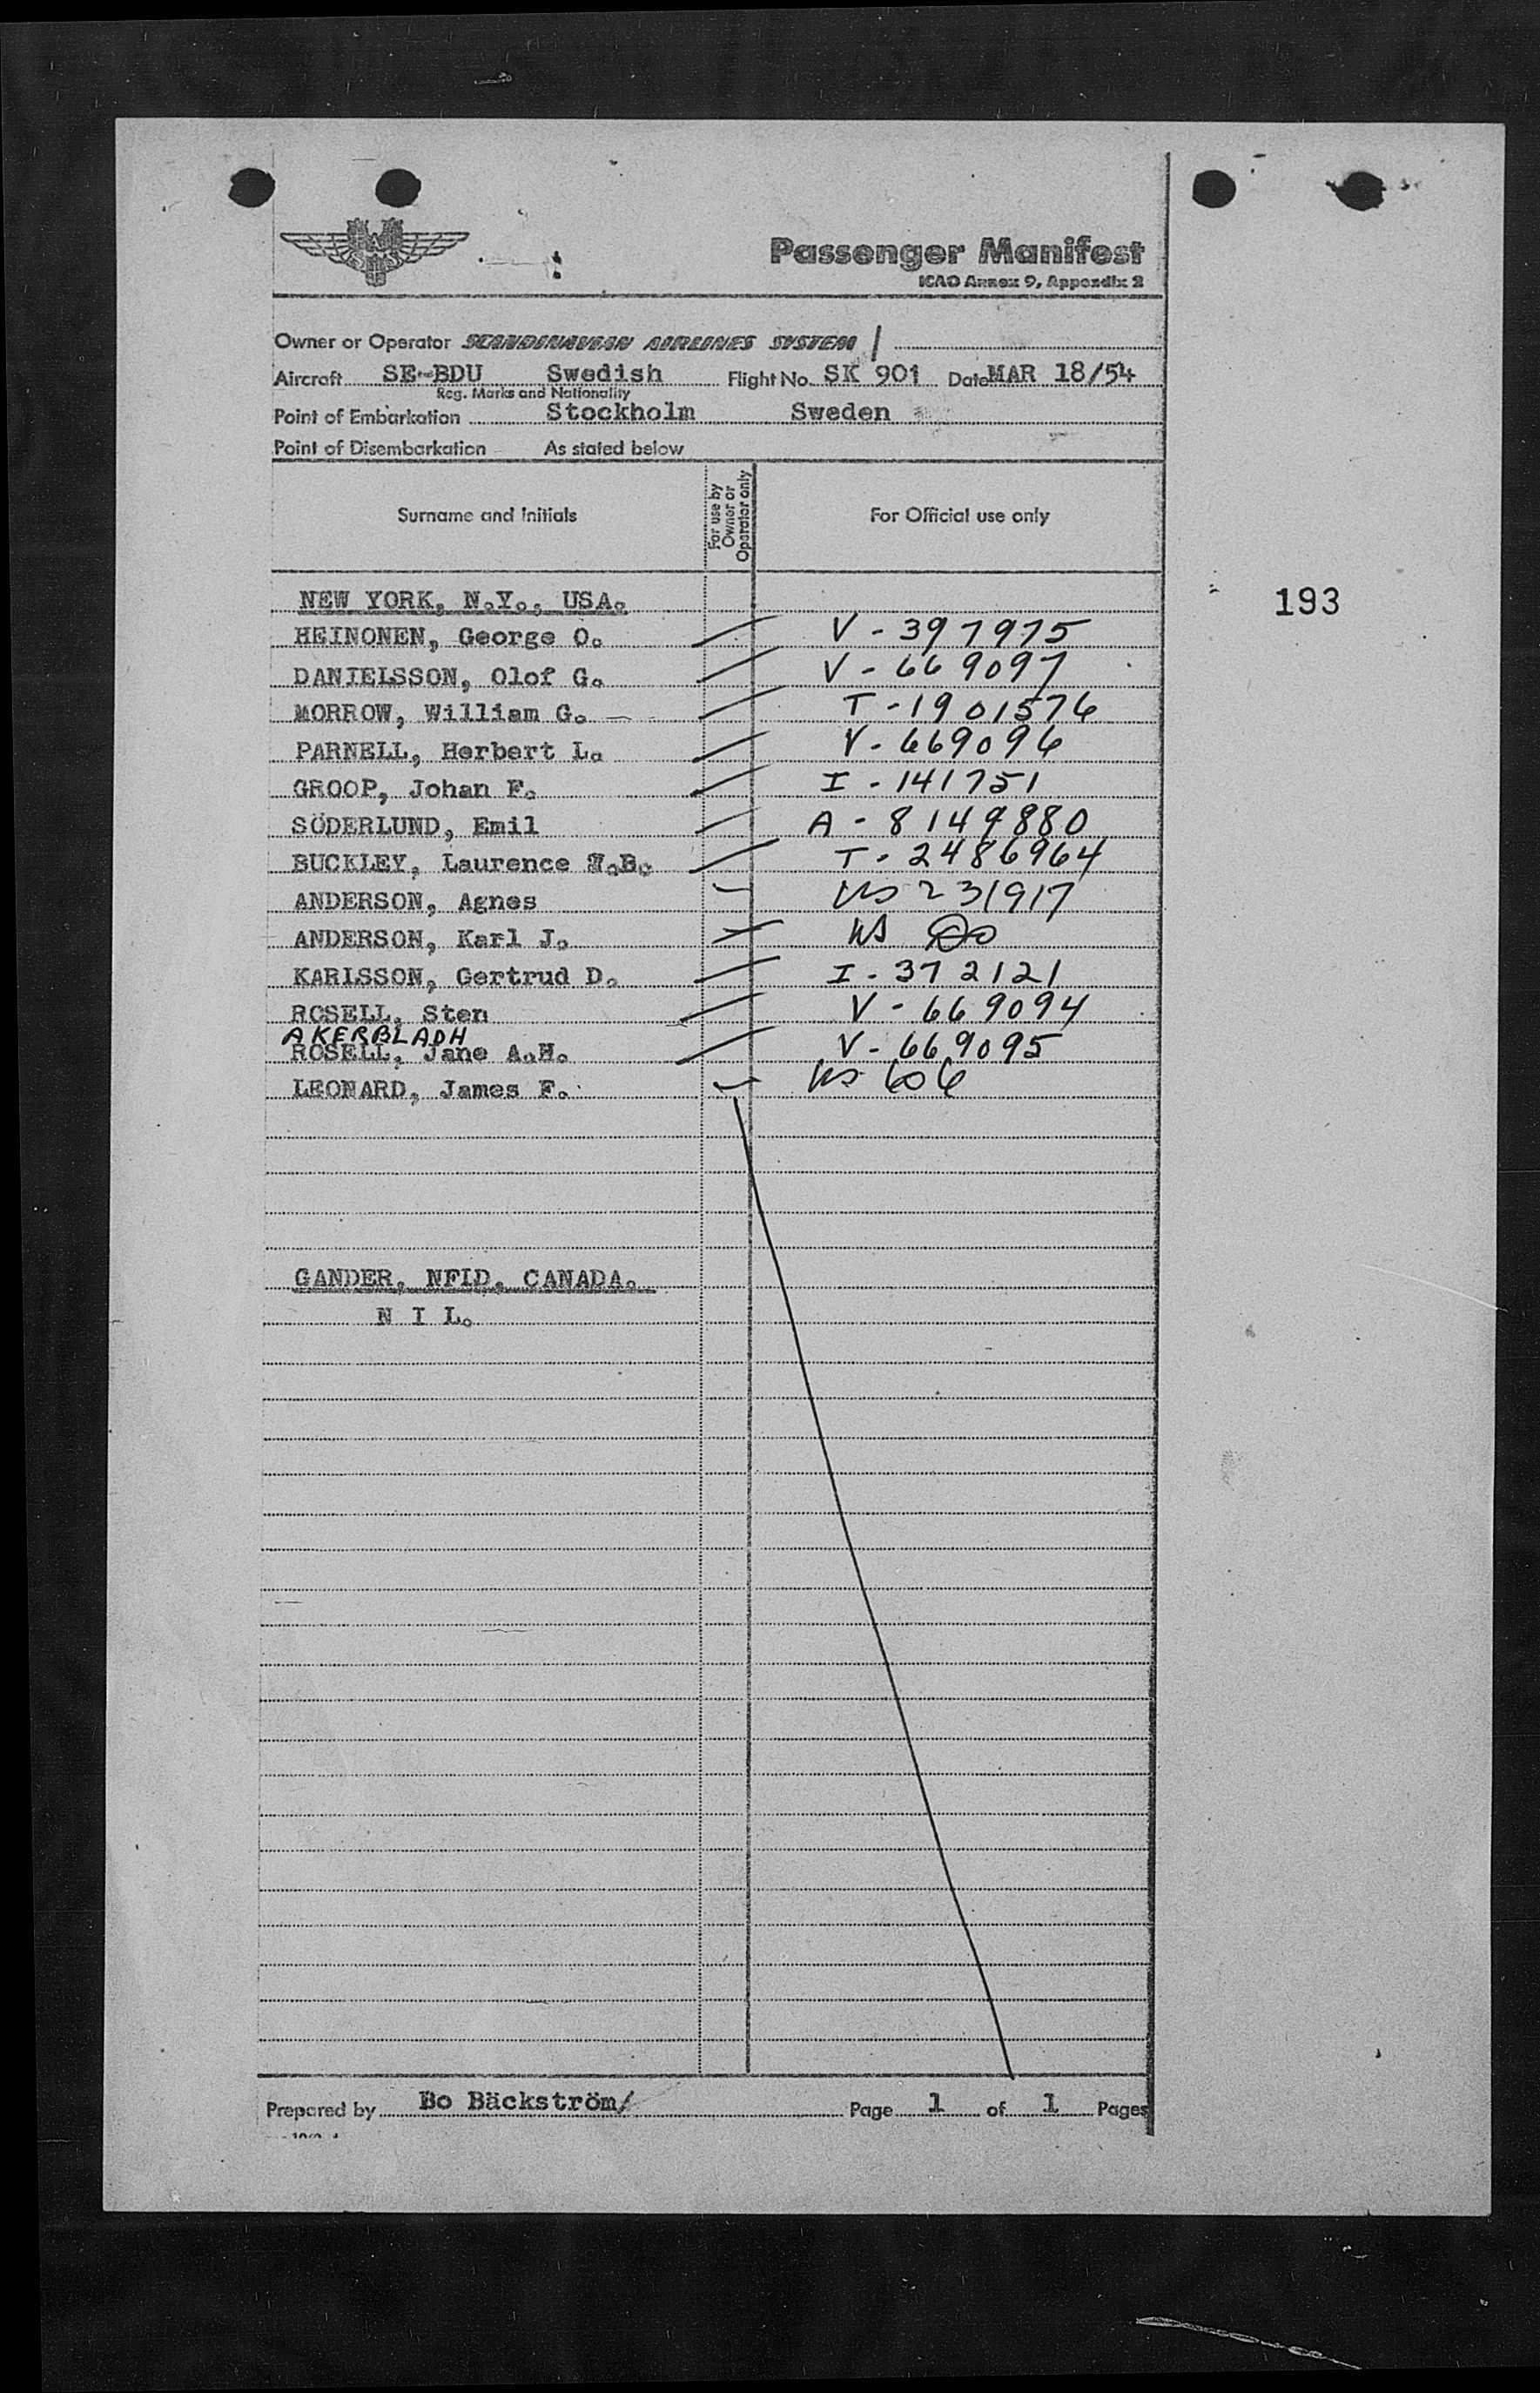 SAS
Passenger Manifest
ICAO Annex 9, Appendix 2
Owner or Operator SCANDINAVIAN AIRLINES SYSTEM /
Aircraft SE-BDU Swedish Flight No. SK 901 Date MAR 18/54
Reg. Marks and Nationality
Point of Embarkation Stockholm Sweden
Point of Disembarkation As stated below
Surname and Initials For use by Owner or Operator only For Official use only
NEW YORK, N.Y., USA. 193
HEINONEN, George O. V - 397975
DANIELSSON, Olof G. V - 669097
MORROW, William G. T - 1901576
PARNELL, Herbert L. V - 669096
GROOP, Johan F. I - 141751
SÖDERLUND, Emil A - 8149880
BUCKLEY, Laurence B. T - 2486964
ANDERSON, Agnes US 231917
ANDERSON, Karl J. US Do
KARLSSON, Gertrud D. I - 372121
ROSELL, Sten V - 669094
AKERBLADH
ROSELL, Jane A.H. V - 669095
LEONARD, James F. US 606
GANDER, NFLD, CANADA.
N I L.
Prepared by Bo Bäckström/ Page 1 of 1 Pages